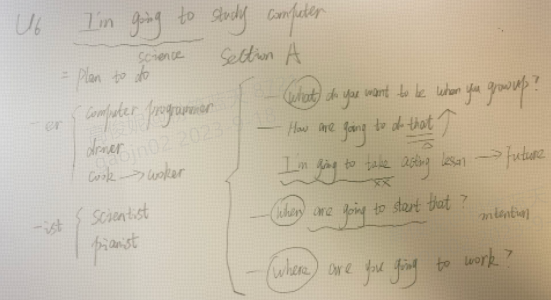 U6 I'm going to study computer
science Section A
= plan to do
-er
computer programmer
driver
cook → woker
-ist
scientist
pianist
- What do you want to be when you grow up?
- How are going to do that
I'm going to take acting lesson → Future
- When are going to start that? intention
- where are you going to work?